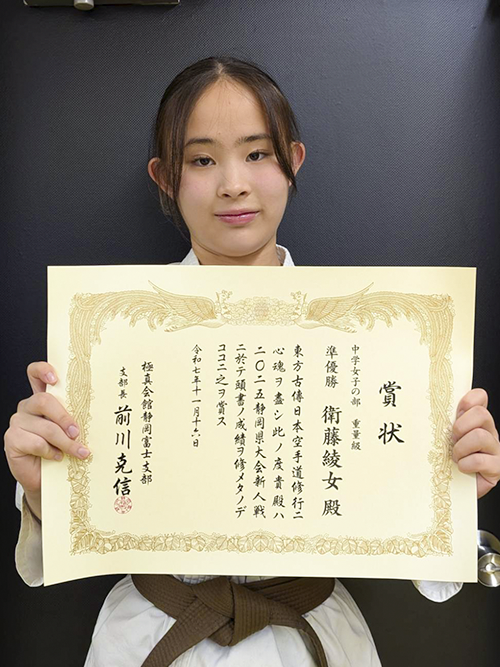 賞状
中学女子の部 重量級
準優勝 衛藤綾女殿
東方古傳日本空手道修行ニ
心魂ヲ盡シ此ノ度貴殿ハ
二〇二五静岡県大会新人戦
ニ於テ頭書ノ成績ヲ修メタノデ
ココニ之ヲ賞ス
令和七年十一月十六日
極真会館静岡富士支部
支部長 前川克信